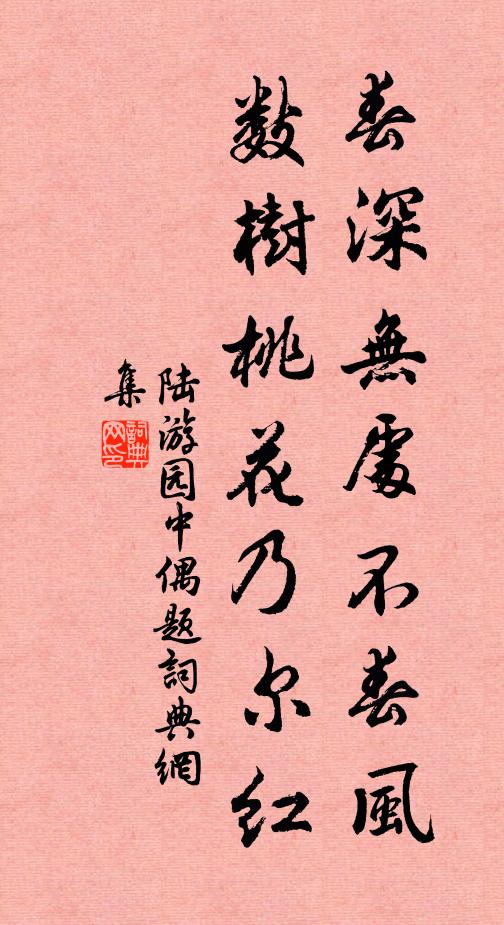 春深無處不春風
數樹桃花乃尔红
陆游园中偶题詞典網
集
詞典网印